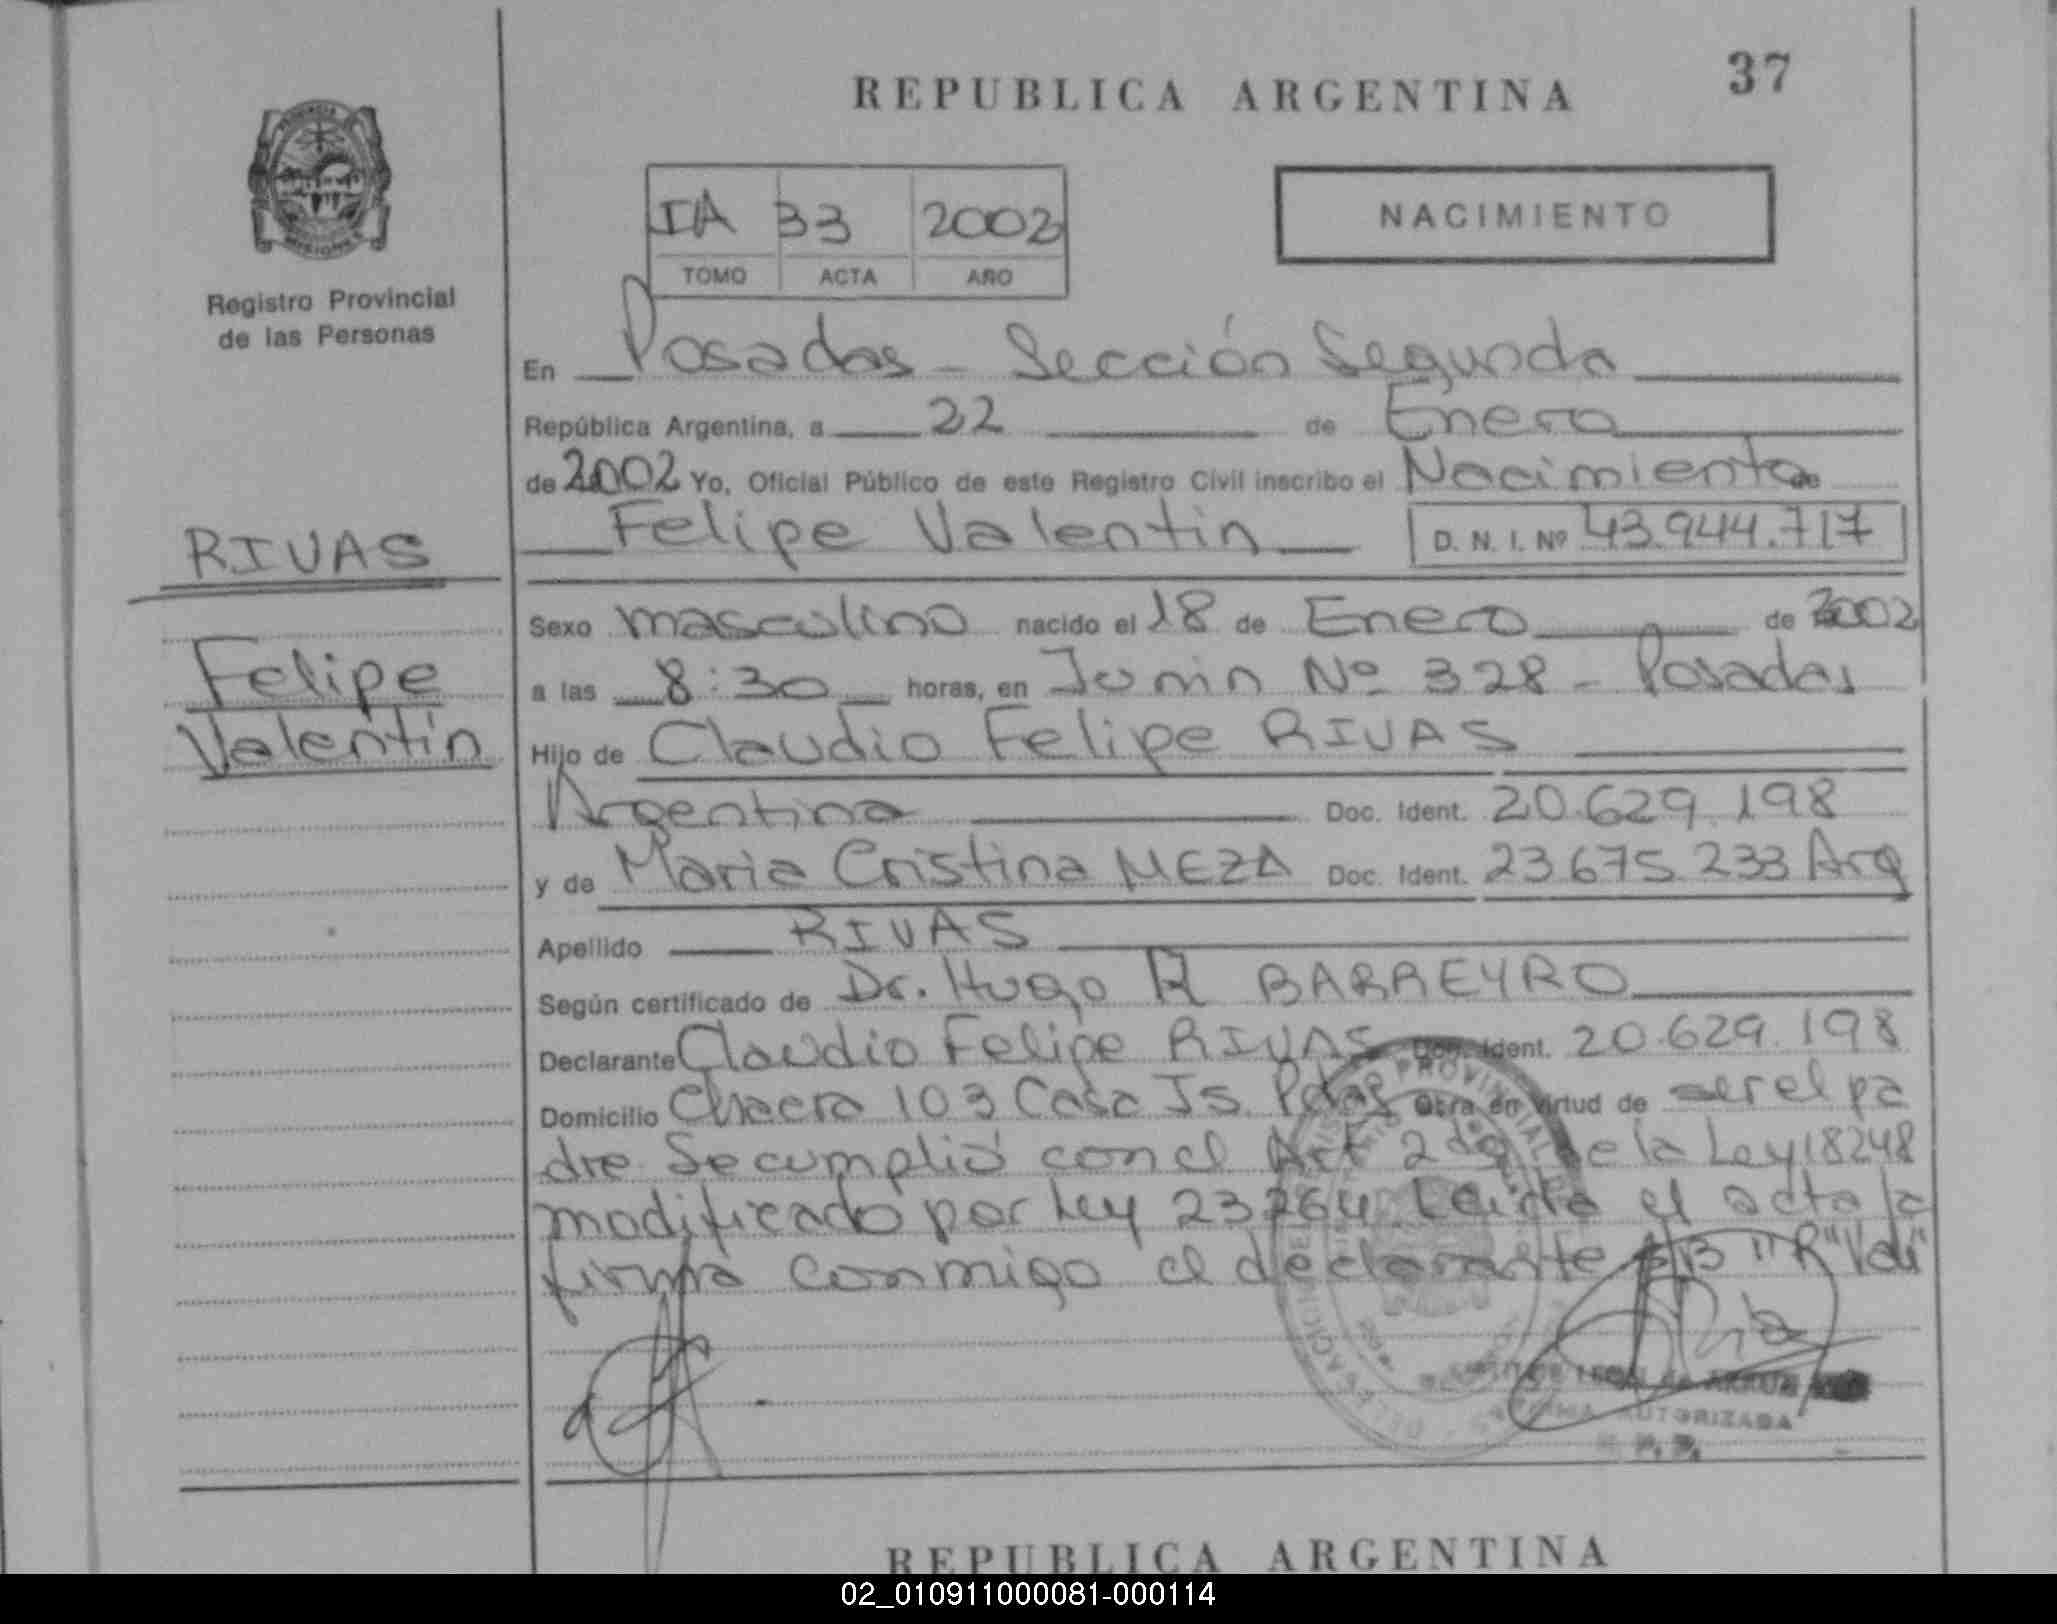 REPUBLICA ARGENTINA
37
IA 33 2002
TOMO ACTA AÑO
NACIMIENTO
Registro Provincial
de las Personas
En Posadas - Sección Segunda
República Argentina, a 22 de Enero
de 2002 Yo, Oficial Público de este Registro Civil inscribo el Nacimiento de
Felipe Valentin D. N. I. Nº 43.944.717
RIVAS
Felipe
Valentín
Sexo masculino nacido el 18 de Enero de 2002
a las 8:30 horas, en Junin Nº 328 - Posadas
Hijo de Claudio Felipe RIVAS
Argentina Doc. Ident. 20.629.198
y de Maria Cristina MEZA Doc. Ident. 23.675.233 Arg
Apellido RIVAS
Según certificado de Dr. Hugo R BARREYRO
Declarante Claudio Felipe RIVAS Doc. Ident. 20.629.198
Domicilio Chacra 103 Casa Pdas Obra en virtud de ser el pa
dre. Se cumplió con el Art 2do de la Ley 18248
modificado por Ley 23264. Leida el acta la
firma conmigo el declarante
AUTORIZADA
REPUBLICA ARGENTINA
02_010911000081-000114